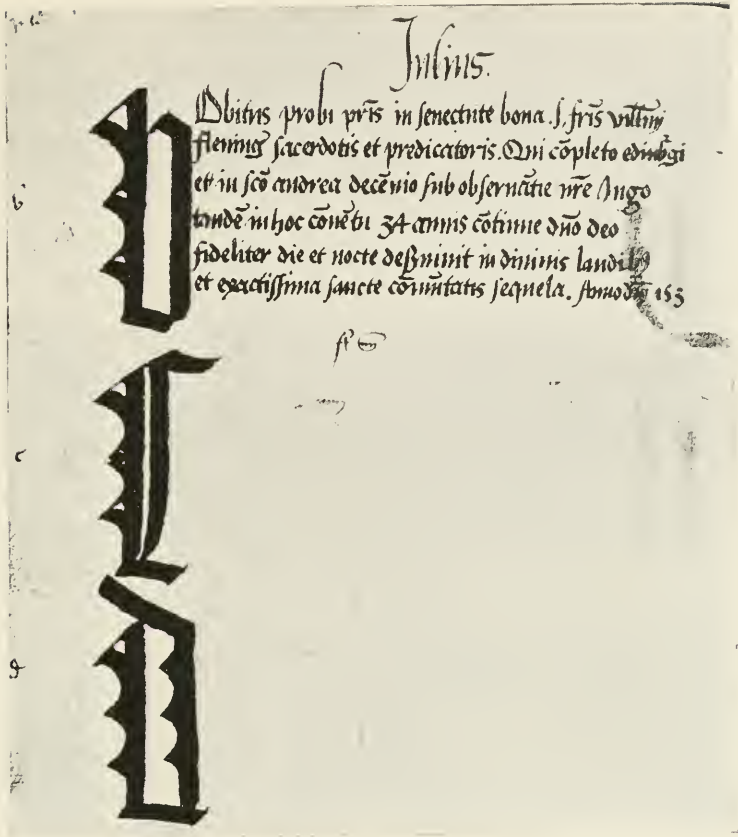 Iulius.
Obitus probi pr̄is in senectute bona. s. fr̄is vill̄mi
fleming sacerdotis et predicatoris. Qui cōpleto edinb̄gi
et in sc̄o andrea decēnio sub obseruātie nr̄e Iugo
tandē in hoc cōuētu 34 annis cōtinue dn̄o deo
fideliter die et nocte deseruiuit in diuinis laudibꝯ
et exactissima sancte cōmunitatis sequela. Anno dn̄i 153
b
c
d